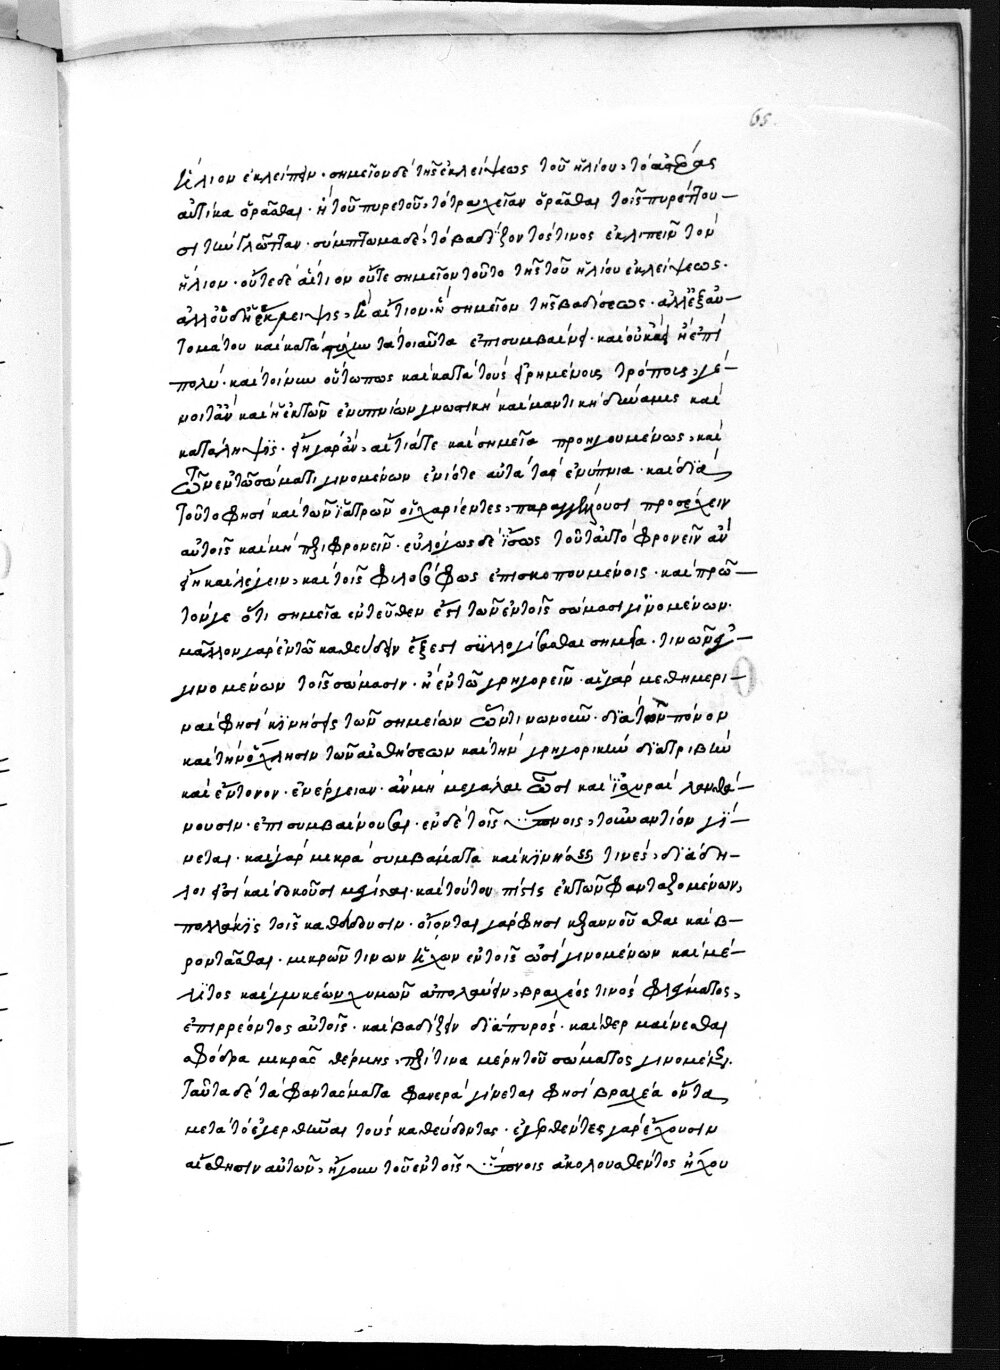 65.
ἥλιον ἐκλείπειν· σημεῖον δὲ τῆς ἐκλείψεως τοῦ ἡλίου, τὸ ἀστέρας
αὐτίκα ὁρᾶσθαι· ἢ τοῦ πυρετοῦ, τὸ τραχεῖαν ὁρᾶσθαι τοῖς πυρέττου-
σι τὴν γλῶτταν· σύμπτωμα δὲ, τὸ βαδίζοντός τινος ἐκλιπεῖν τὸν
ἥλιον· οὔτε δὲ αἴτιον οὔτε σημεῖον τοῦτο τῆς τοῦ ἡλίου ἐκλείψεως·
ἀλλ' οὐδ' ἡ ἔκλειψις, ἢ αἴτιον ἢ σημεῖον τῆς βαδίσεως· ἀλλ' ἐξ αὐ-
τομάτου καὶ κατὰ τύχην τὰ τοιαῦτα ἐπισυμβαίνει· καὶ οὐκ ἀεὶ ἢ ἐπὶ
πολύ· καὶ τοίνυν οὕτω πως καὶ κατὰ τοὺς εἰρημένους τρόπους, γέ-
νοιτ' ἂν καὶ ἡ ἐκ τῶν ἐνυπνίων γνωστικὴ καὶ μαντικὴ δύναμις καὶ
κατάληψις· εἴη γὰρ ἂν, αἴτιά τε καὶ σημεῖα προηγουμένως, καὶ
τῶν ἐν τῷ σώματι γινομένων ἐνίοτε αὐτὰ τὰ ἐνύπνια· καὶ διὰ
τοῦτο φησὶ καὶ τῶν ἰατρῶν οἱ χαρίεντες, παραγγέλλουσι προσέχειν
αὐτοῖς καὶ μὴ περιφρονεῖν· εὐλόγως δὲ ἴσως τοῦτ' αὐτὸ φρονεῖν ἂν
εἴη καὶ λέγειν, καὶ τοῖς φιλοσόφως ἐπισκοπουμένοις· καὶ πρῶ-
τόν γε ὅτι σημεῖα ἐντεῦθεν ἔστι τῶν ἐν τοῖς σώμασι γινομένων·
μᾶλλον γὰρ ἐν τῷ καθεύδειν ἔξεστι συλλογίσασθαι σημεῖα· τινῶν
γινομένων τοῖς σώμασιν· ἢ ἐν τῷ γρηγορεῖν· αἱ γὰρ μεθημερι-
ναὶ φησὶ κινήσεις τῶν σημείων ὧντινωνοῦν· διὰ τὸν πόνον
καὶ τὴν ὄχλησιν τῶν αἰσθήσεων καὶ τὴν γρηγορικὴν διατριβὴν
καὶ ἔντονον ἐνέργειαν· ἂν μὴ μεγάλαι ὦσι καὶ ἰσχυραὶ λανθά-
νουσιν· ἐπισυμβαίνουσαι· ἐν δὲ τοῖς ὕπνοις, τοὐναντίον γί-
νεται· καὶ γὰρ μικρὰ συμβάματα καὶ κινήσεις τινές, διάδη-
λοι εἰσὶ καὶ δοκοῦσι μέγισται· καὶ τούτου πίστις ἐκ τῶν φανταζομένων,
πολλάκις τοῖς καθεύδουσιν· οἴονται γάρ φησι κεραυνοῦσθαι καὶ β-
ροντᾶσθαι· μικρῶν τινων ἤχων ἐν τοῖς ὠσὶ γινομένων καὶ μέ-
λιτος καὶ γλυκέων χυμῶν ἀπολαύειν, βραχέος τινὸς φλέγματος,
ἐπιρρέοντος αὐτοῖς· καὶ βαδίζειν διὰ πυρός· καὶ θερμαίνεσθαι
σφόδρα μικρᾶς θέρμης, περί τινα μέρη τοῦ σώματος γινομένης.
ταῦτα δὲ τὰ φαντάσματα φανερὰ γίνεται φησὶ βραχέα ὄντα
μετὰ τὸ ἐγερθῆναι τοὺς καθεύδοντας· ἐγερθέντες γὰρ ἔχουσιν
αἴσθησιν αὐτῶν, ἤγουν τοῦ ἐν τοῖς ὕπνοις ἀκολουθέντος ἤχου